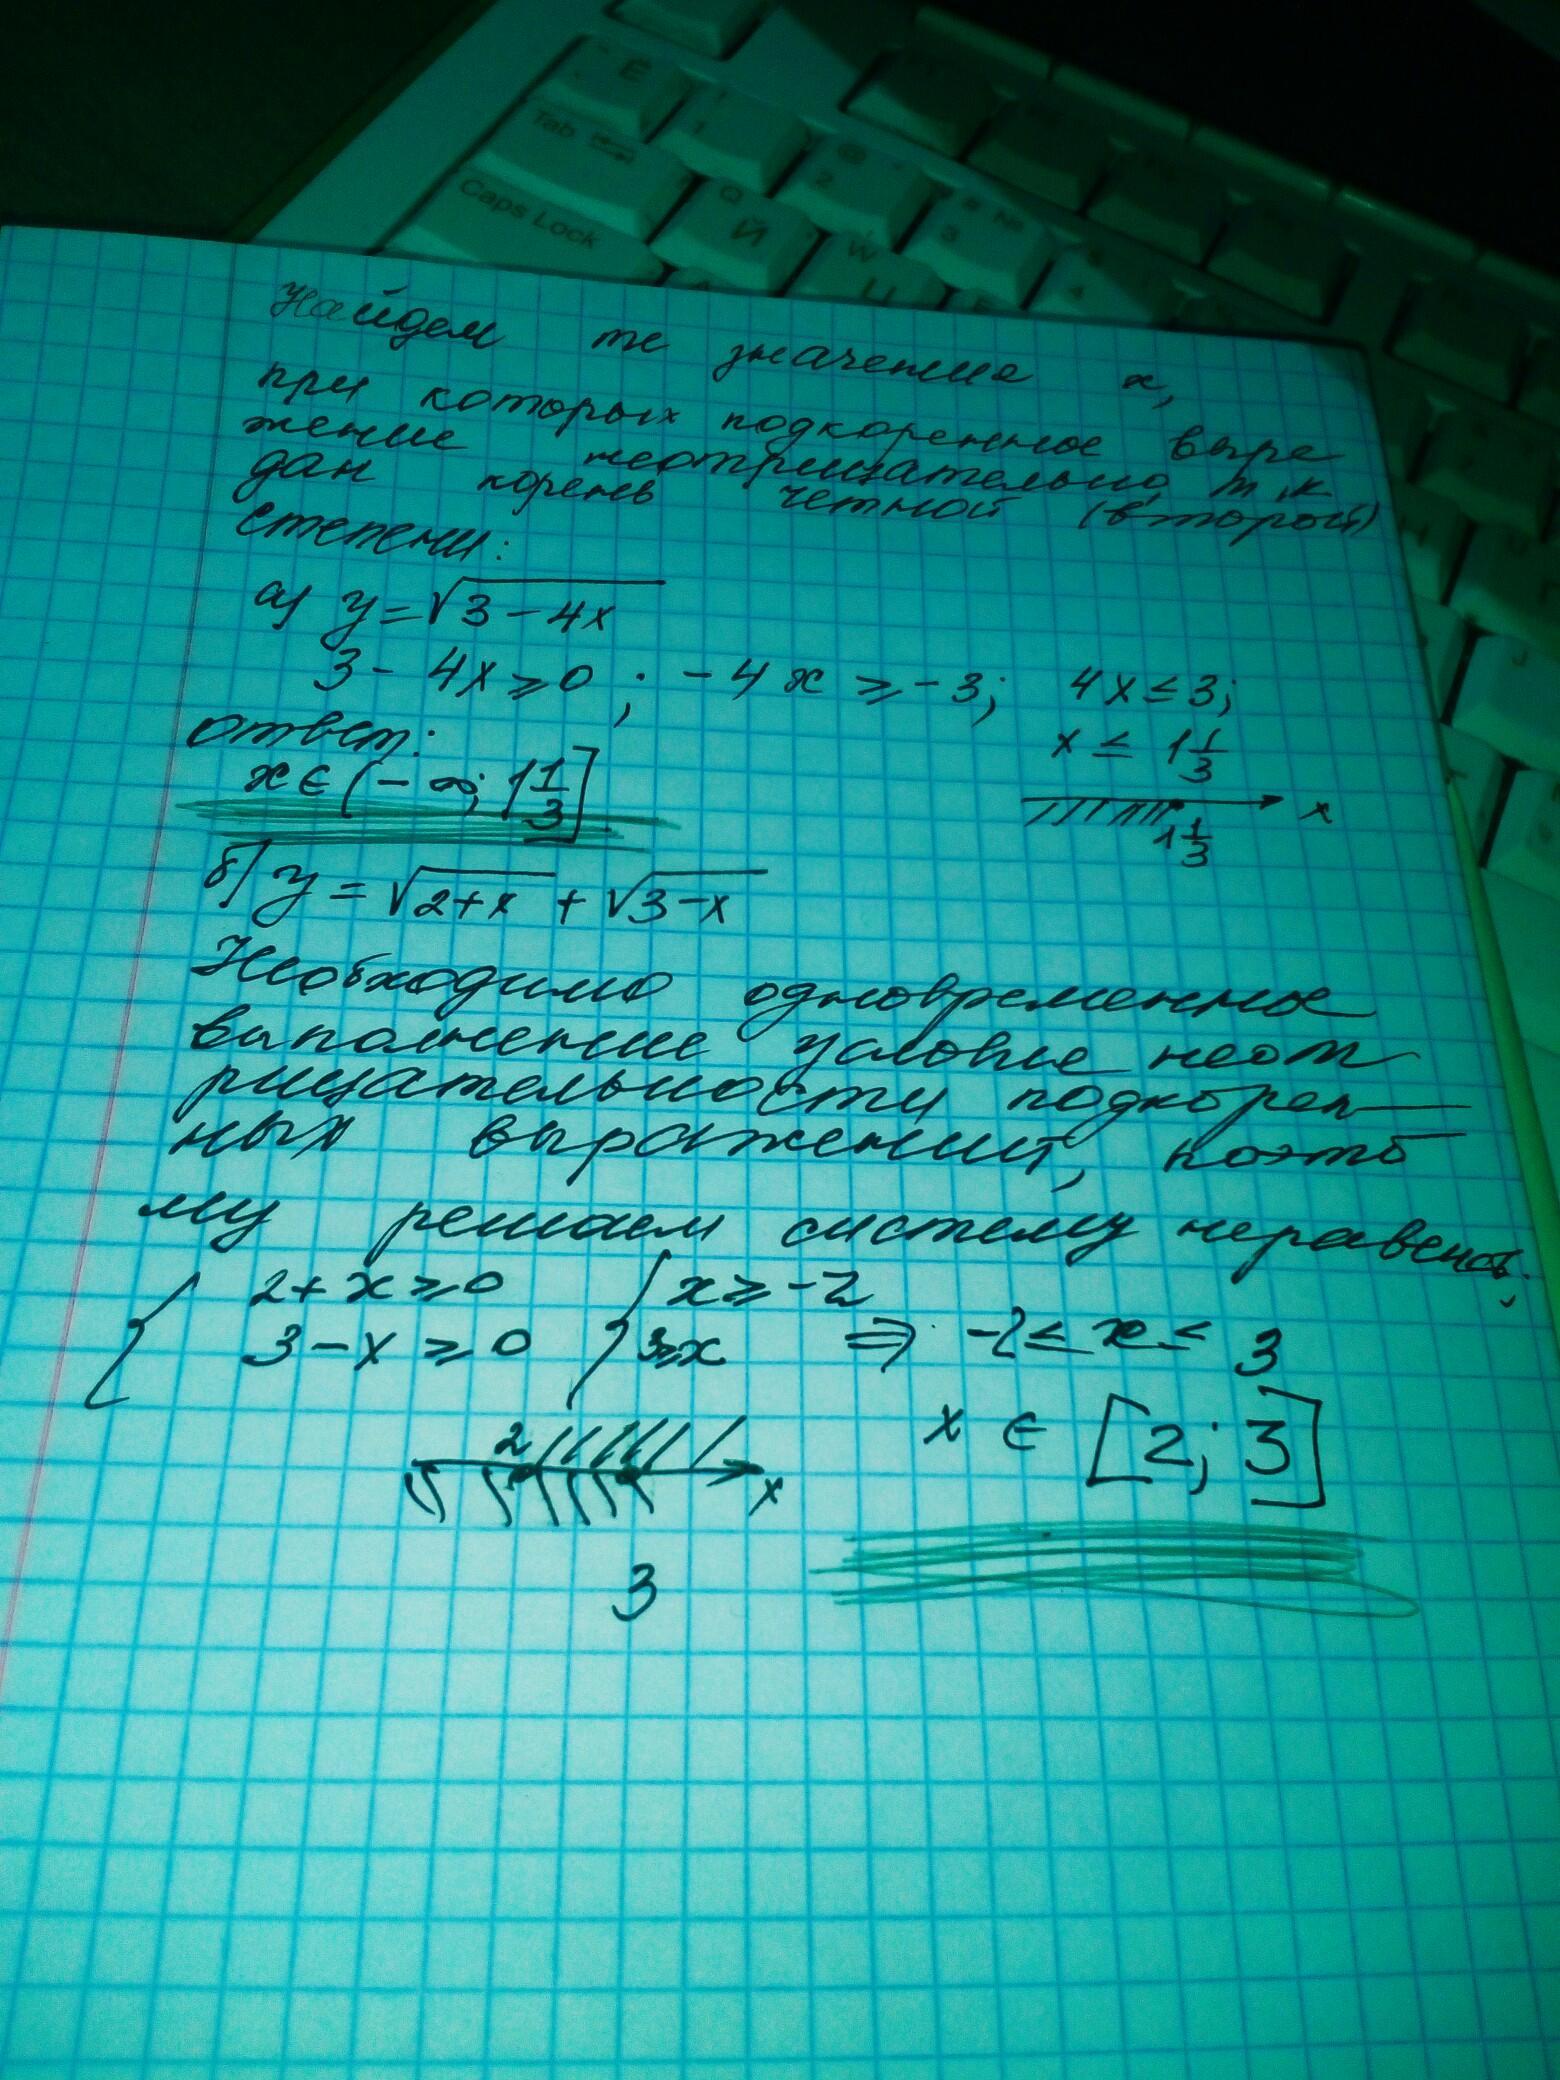 Ё
1
Tab
@ 2
# № 3
4
Caps Lock
Q Й
W Ц
Найдем те значения x,
при которых подкоренное выра
жение неотрицательно, т.к.
дан корень четной (второй)
степени:
а) y = √3 - 4x
3 - 4x ≥ 0 ; -4x ≥ -3; 4x ≤ 3;
ответ: x ≤ 1 1/3
x ∈ (-∞; 1 1/3]
x
1 1/3
б) y = √2+x + √3-x
Необходимо одновременное
выполнение условие неот
рицательности подкорен
ных выражений, поэто
му решаем систему неравенств:
{ 2+x ≥ 0 { x ≥ -2
3-x ≥ 0 3 ≥ x ⇒ -2 ≤ x ≤ 3
x ∈ [2; 3]
2
x
3